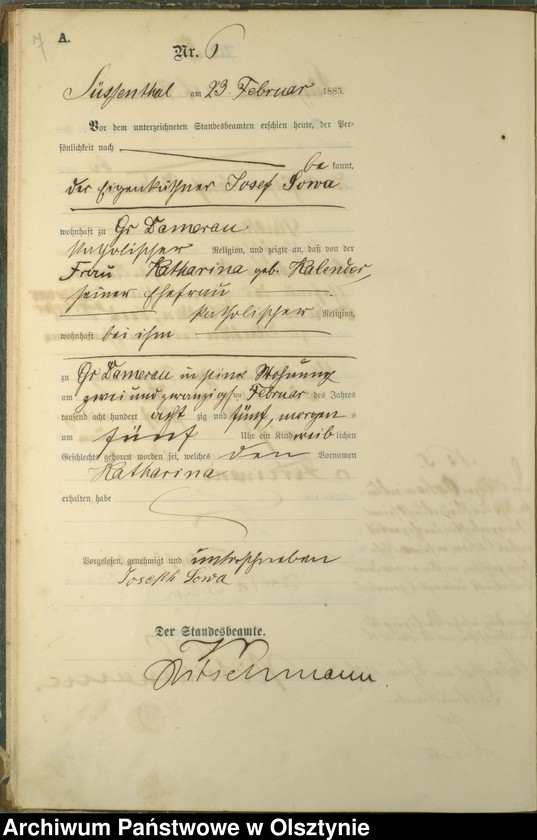 7
A.
Nr. 6
Süssenthal am 23 Februar 1885.
Vor dem unterzeichneten Standesbeamten erschien heute, der Per-
sönlichkeit nach
be kannt,
der Eigenkäthner Josef Sowa
wohnhaft zu Gr Damerau
katholischer Religion, und zeigte an, daß von der
Frau Katharina geb. Kalender,
seiner Ehefrau
katholischer Religion,
wohnhaft bei ihm
zu Gr Damerau in seiner Wohnung
am zwei und zwanzigsten Februar des Jahres
tausend acht hundert acht zig und fünf, morgens
um fünf Uhr ein Kind weib lichen
Geschlechts geboren worden sei, welches den Vornamen
Katharina
erhalten habe
Vorgelesen, genehmigt und unterschrieben
Joseph Sowa
Der Standesbeamte.
Archiwum Państwowe w Olsztynie